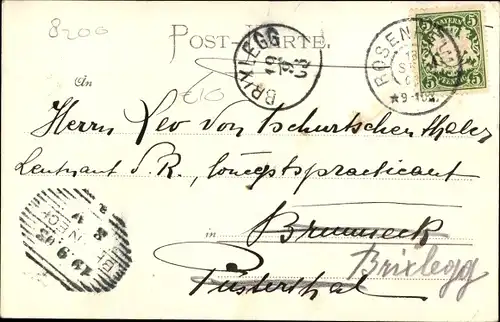 8200
POST-KARTE.
BRIXLEGG
19 9 03
ROSEN
BAYERN
5 5
5 5
★9-10
€10
An
Herrn Leo von Tschurtschenthaler
Leutnant d. R., Conceptspracticant
in Bruneck
Pusterthal
Brixlegg
19 9 03
8 V